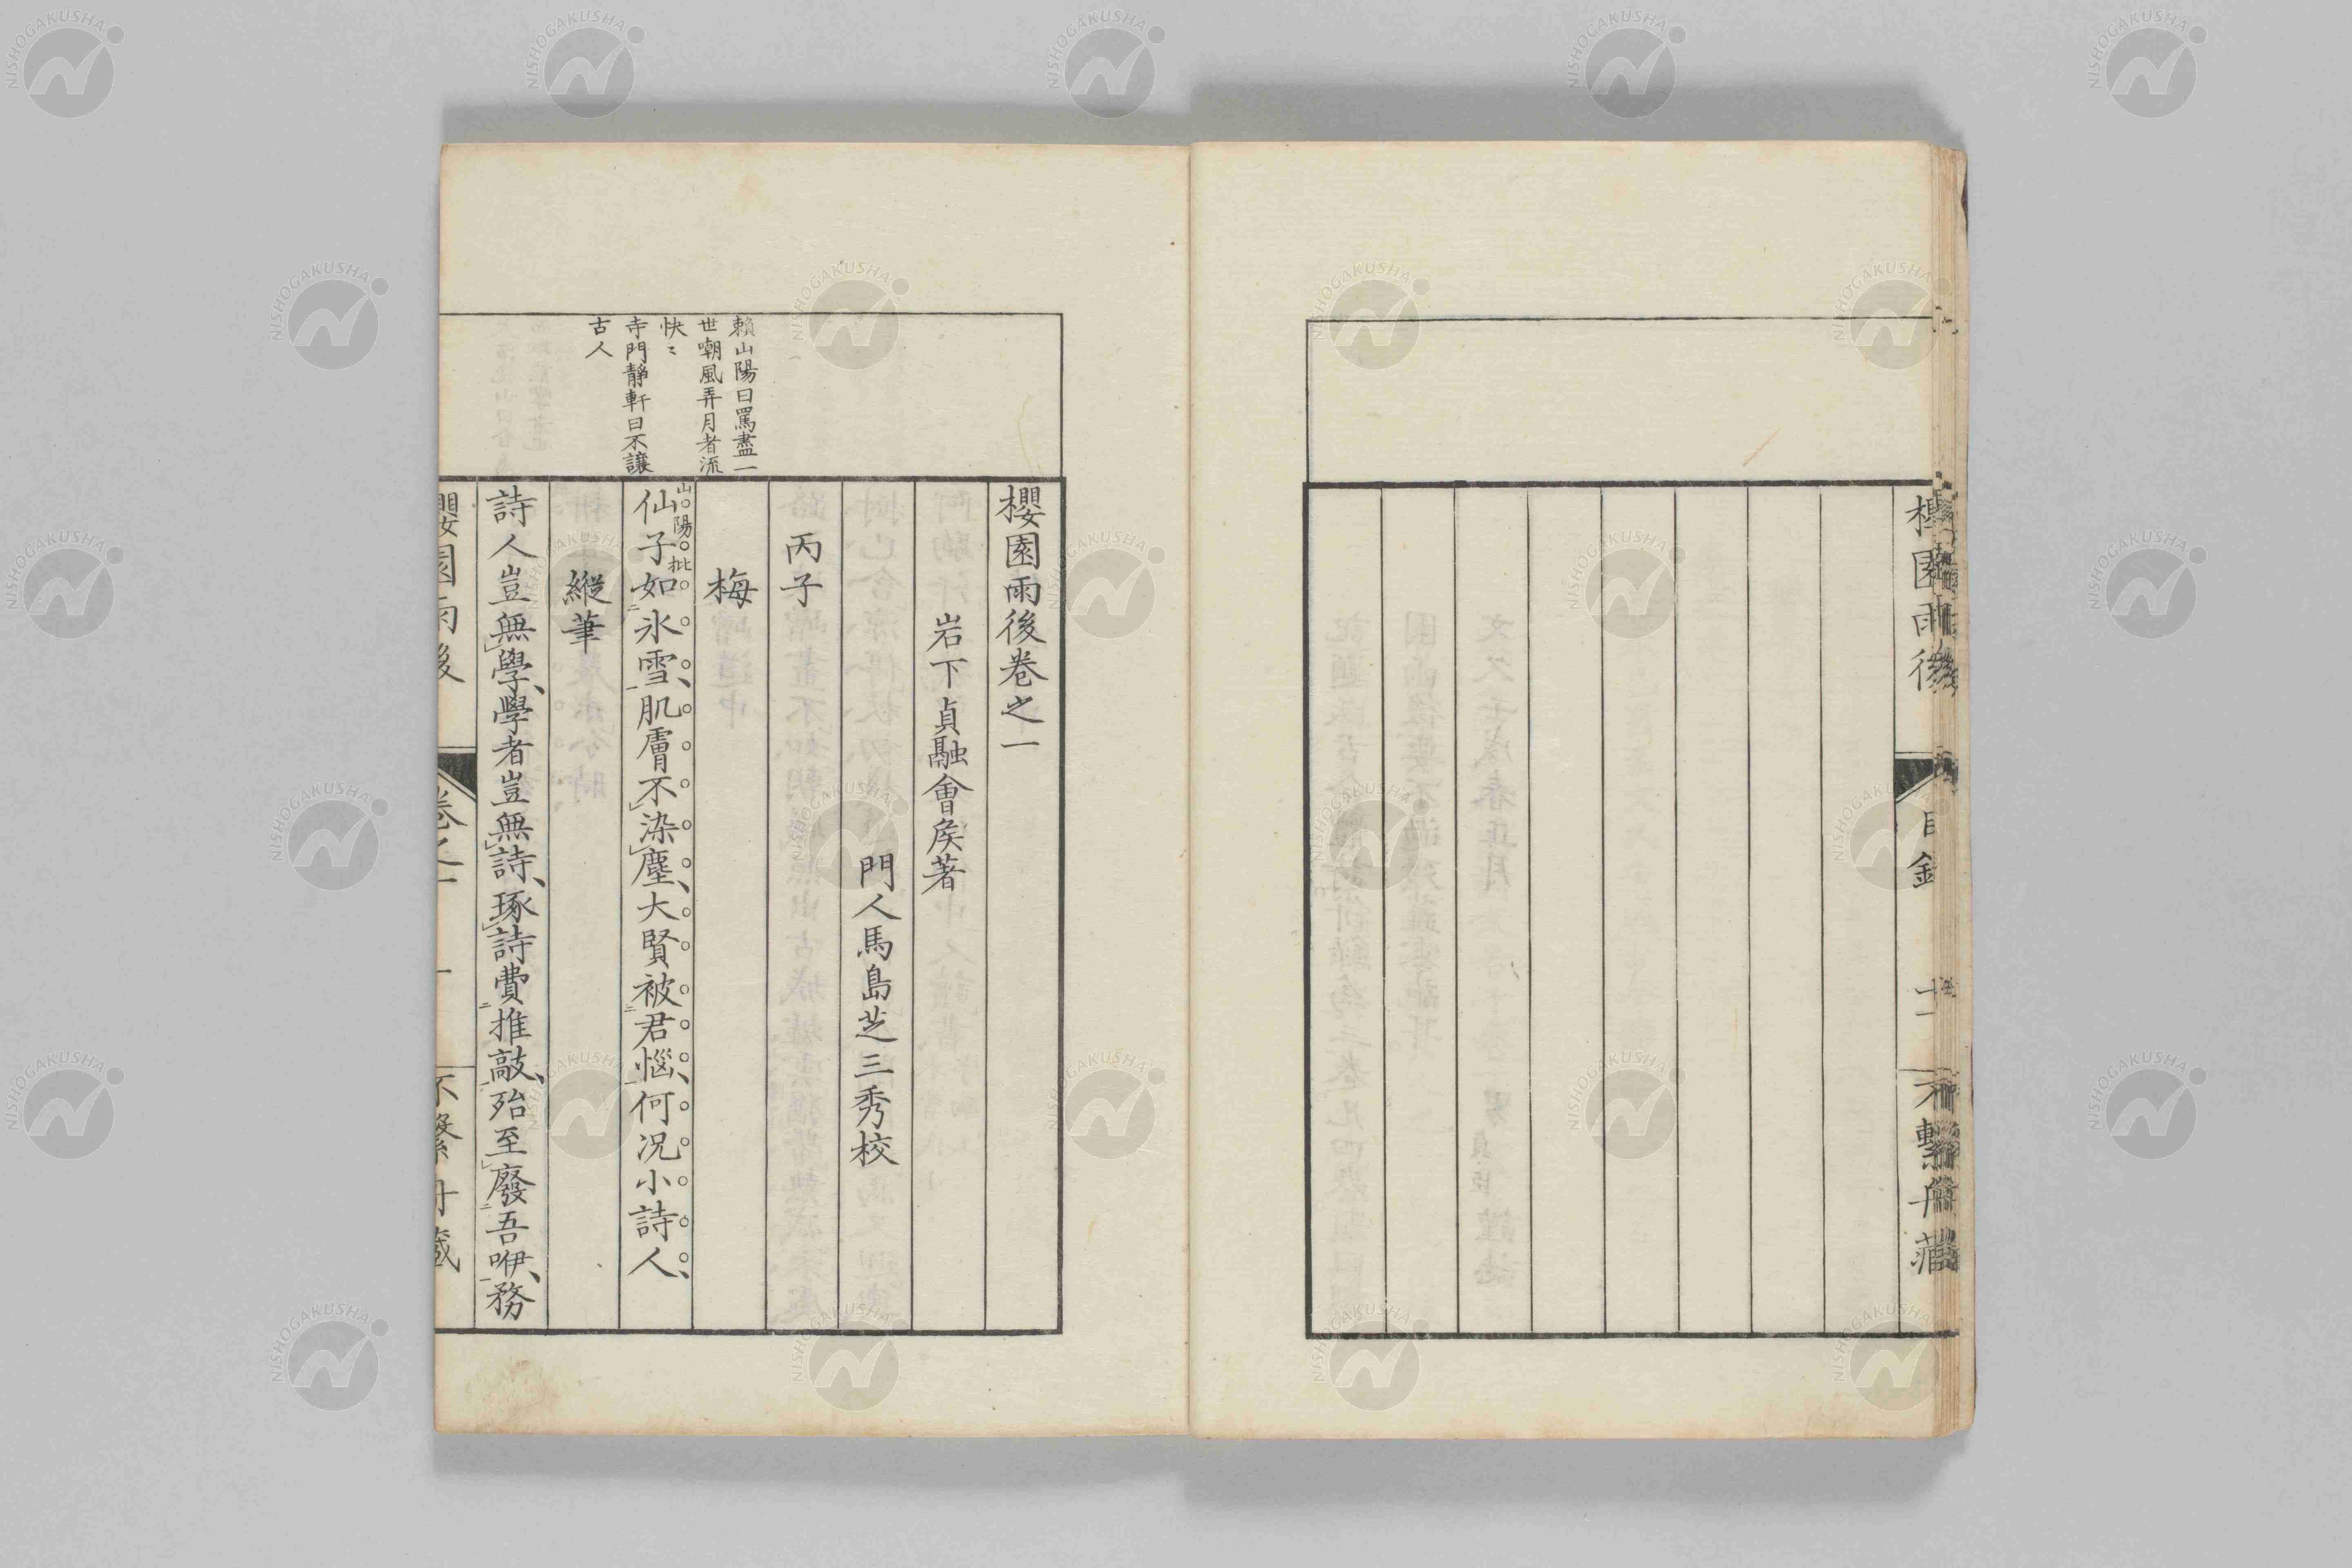 櫻園雨後
目錄
十一
不繫舟藏
櫻園雨後卷之一
岩下貞融會侯著
門人馬島芝三秀校
丙子
梅
賴山陽曰罵盡一
世嘲風弄月者流
快〻
寺門靜軒曰不讓
古人
山陽批
仙子如氷雪肌膚不染塵大賢被君惱何况小詩人
縱筆
詩人豈無學學者豈無詩琢詩費推敲殆至廢吾咿務
櫻園雨後
卷之一
一
不繫舟藏
NISHOGAKUSHA